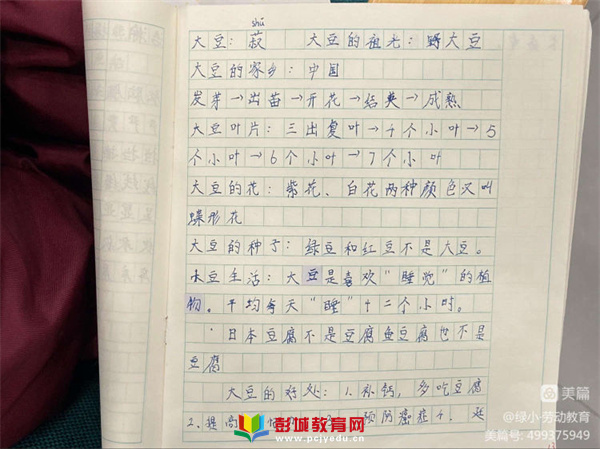 shū
大豆：菽 大豆的祖先：野大豆
大豆的家乡：中国
发芽→出苗→开花→结荚→成熟
大豆叶片：三出复叶→4个小叶→5
个小叶→6个小叶→7个小叶
大豆的花：紫花、白花两种颜色又叫
蝶形花
大豆的种子：绿豆和红豆不是大豆。
大豆生活：大豆是喜欢“睡觉”的植
物。平均每天“睡”十二个小时。
日本豆腐不是豆腐鱼豆腐也不是
豆腐
大豆的好处：1.补钙，多吃豆腐
2、提高 预防癌症4、
彭城教育网
www.pcjyedu.cn
美篇
@绿小·劳动教育
美篇号: 499375949